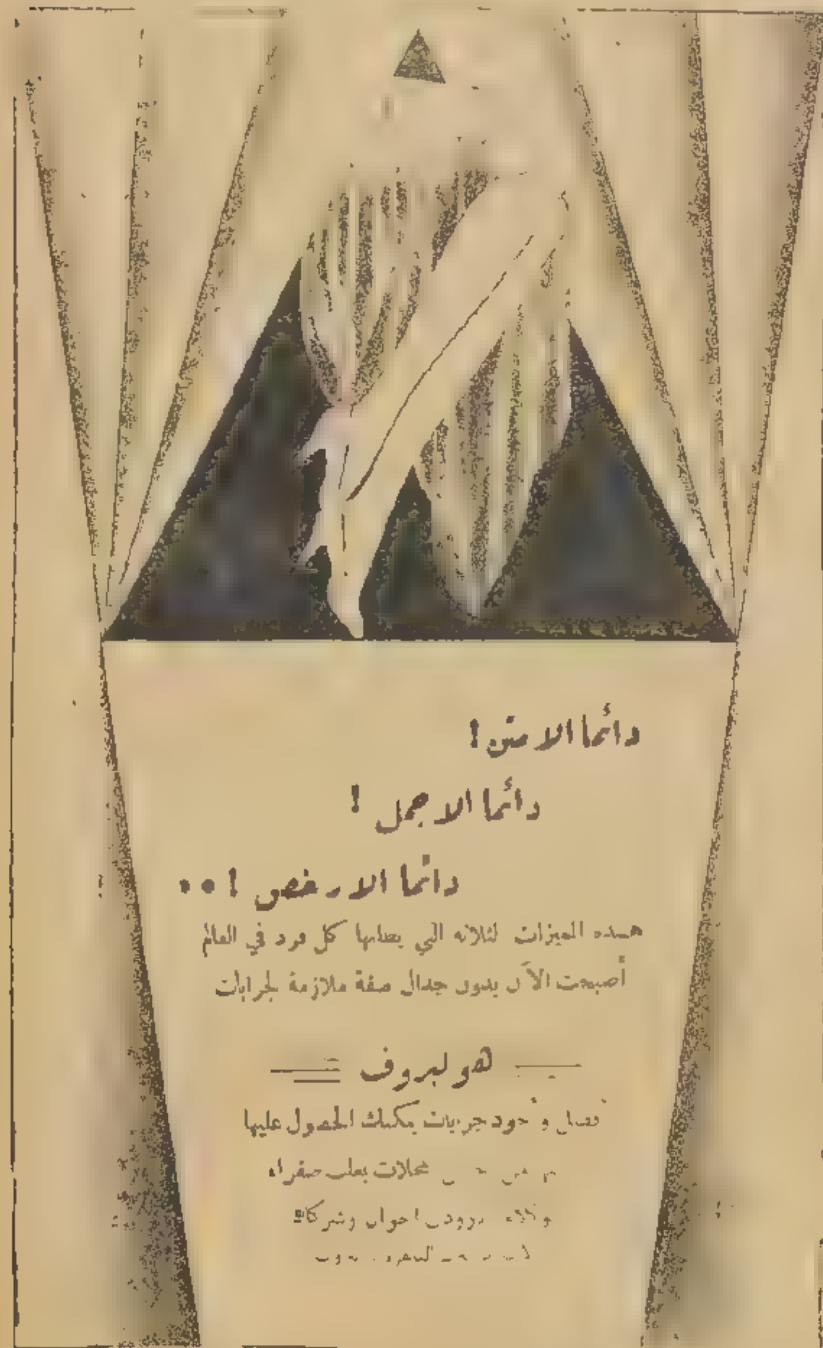 دائما الامتن !
دائما الاجمل !
دائما الارخص ! ..
هـذه الميزات الثلاثة التي يطلبها كل فرد في العالم
أصبحت الآن بدون جدال صفة ملازمة لجرابات
هولبروف
أفضل وأجود جربات يمكنك الحصول عليها
محلات بعلب صفراء
اخوان وشركاه